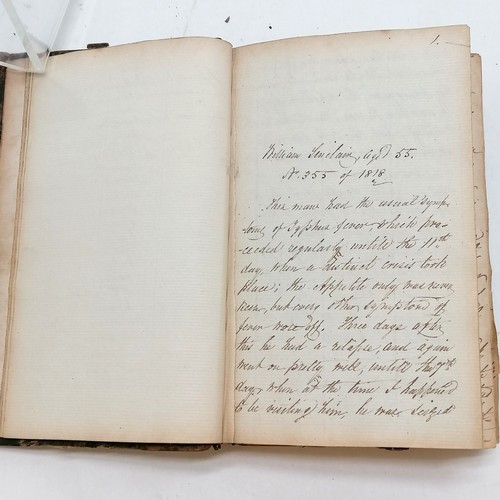 1.
William Sinclair, aged 55.
No. 355 of 1818
This man had the usual symp-
toms of Typhus fever, which pro-
-ceeded regularly untill the 11th
day, when a distinct crisis took
place; the appetite only was never
keen, but every other symptom of
fever wore off. Three days after
this he had a relapse, and again
went on pretty well, untill the 7th
day, when at the time I happened
to be visiting him, he was seized